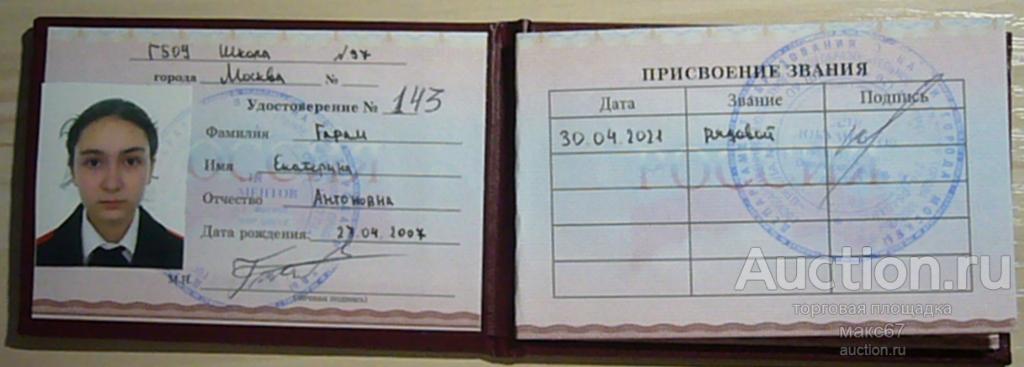 ГБОУ Школа №97
города Москва №
Удостоверение № 143
Фамилия Гарам
Имя Екатерина
Отчество Антоновна
Дата рождения: 27.04.2007
М.П.
(личная подпись)
ПРИСВОЕНИЕ ЗВАНИЯ
Дата Звание Подпись
30.04.2021 рядовой
РОССИЯ
Auction.ru
торговая площадка
макс67
auction.ru